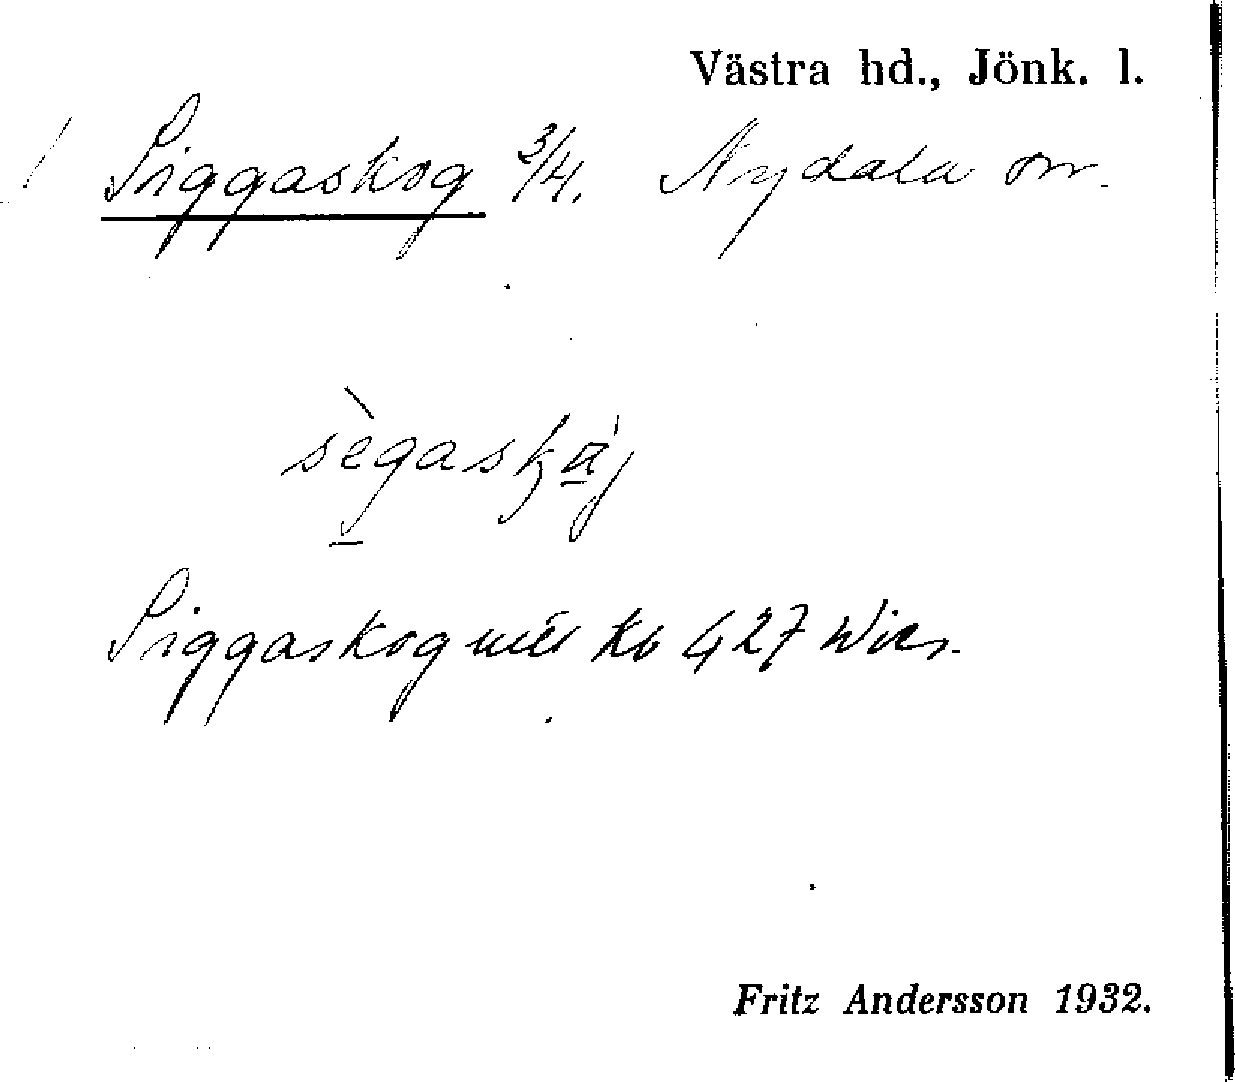 Västra hd., Jönk. l.
Siggaskog 3/4. Nydala sn.
sègaskáj
Siggaskog Kb 427 Wies.
Fritz Andersson 1932.